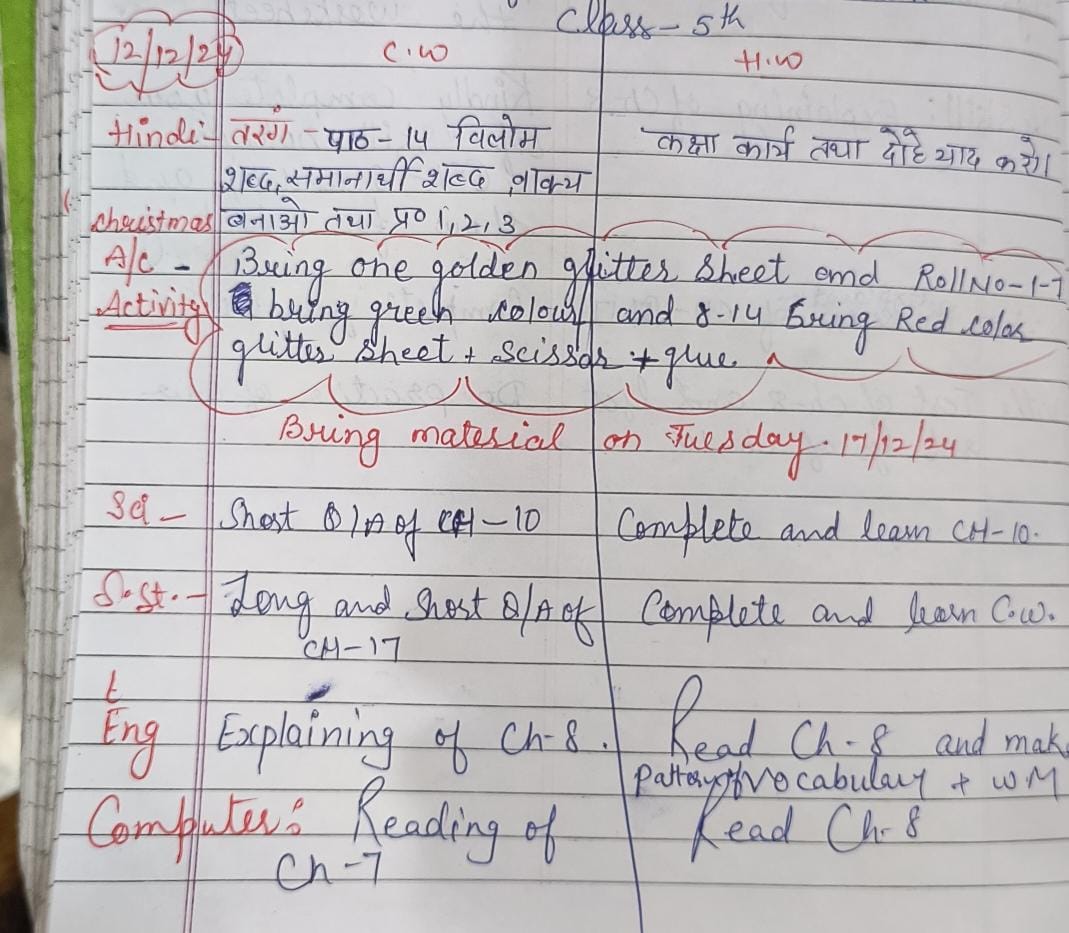 Class - 5th
12/12/24 C.W H.W
Hindi - तरंग - पाठ - 14 विलोम कक्षा कार्य तथा दोहे याद करो।
शब्द, समानार्थी शब्द, वाक्य
Christmas बनाओ तथा प्र० 1, 2, 3
A/C - Bring one golden glitter sheet and Roll No - 1-7
Activity bring green colour and 8-14 bring Red color
glitter sheet + scissor + glue
Bring material on Tuesday. 17/12/24
Sci - Short Q/A of CH - 10 Complete and learn CH-10.
S.St. - Long and short Q/A of Complete and learn C.W.
CH-17
t
Eng Explaining of Ch-8. Read Ch-8 and mak
vocabulary + WM
Computer: Reading of Read Ch-8
Ch-7